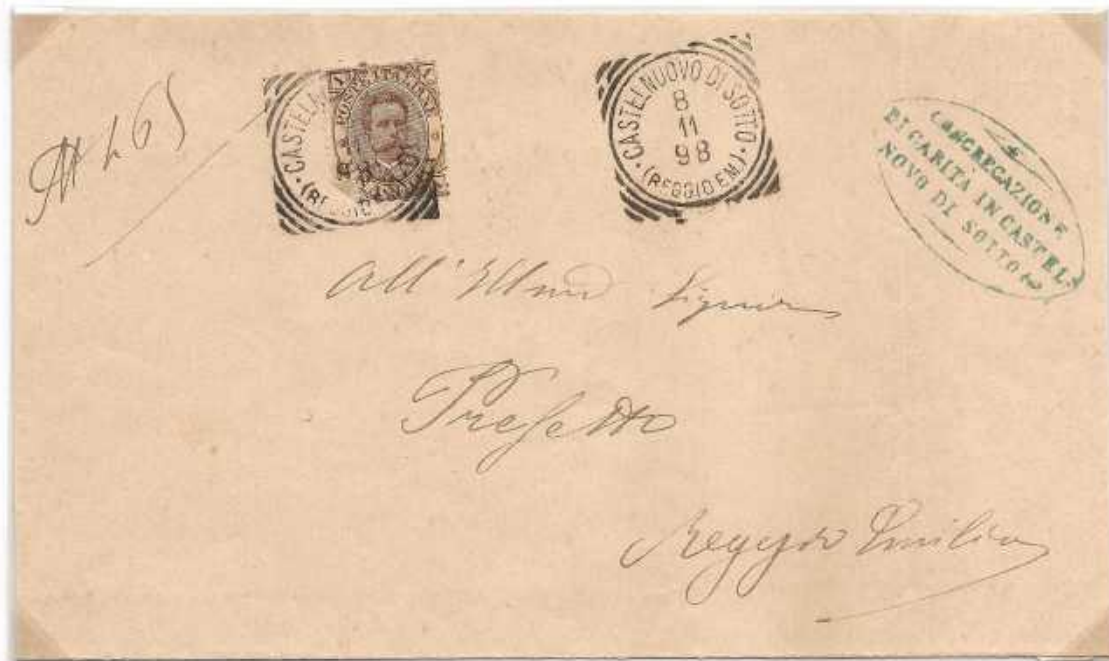 N 165
CASTELN
(REGGIO
POSTE ITALIANE
CASTELNUOVO DI SOTTO
8
11
98
(REGGIO EM.)
CONGREGAZIONE
DI CARITÀ IN CASTEL-
NOVO DI SOTTO
All' Illmo Signor
Prefetto
Reggio Emilia